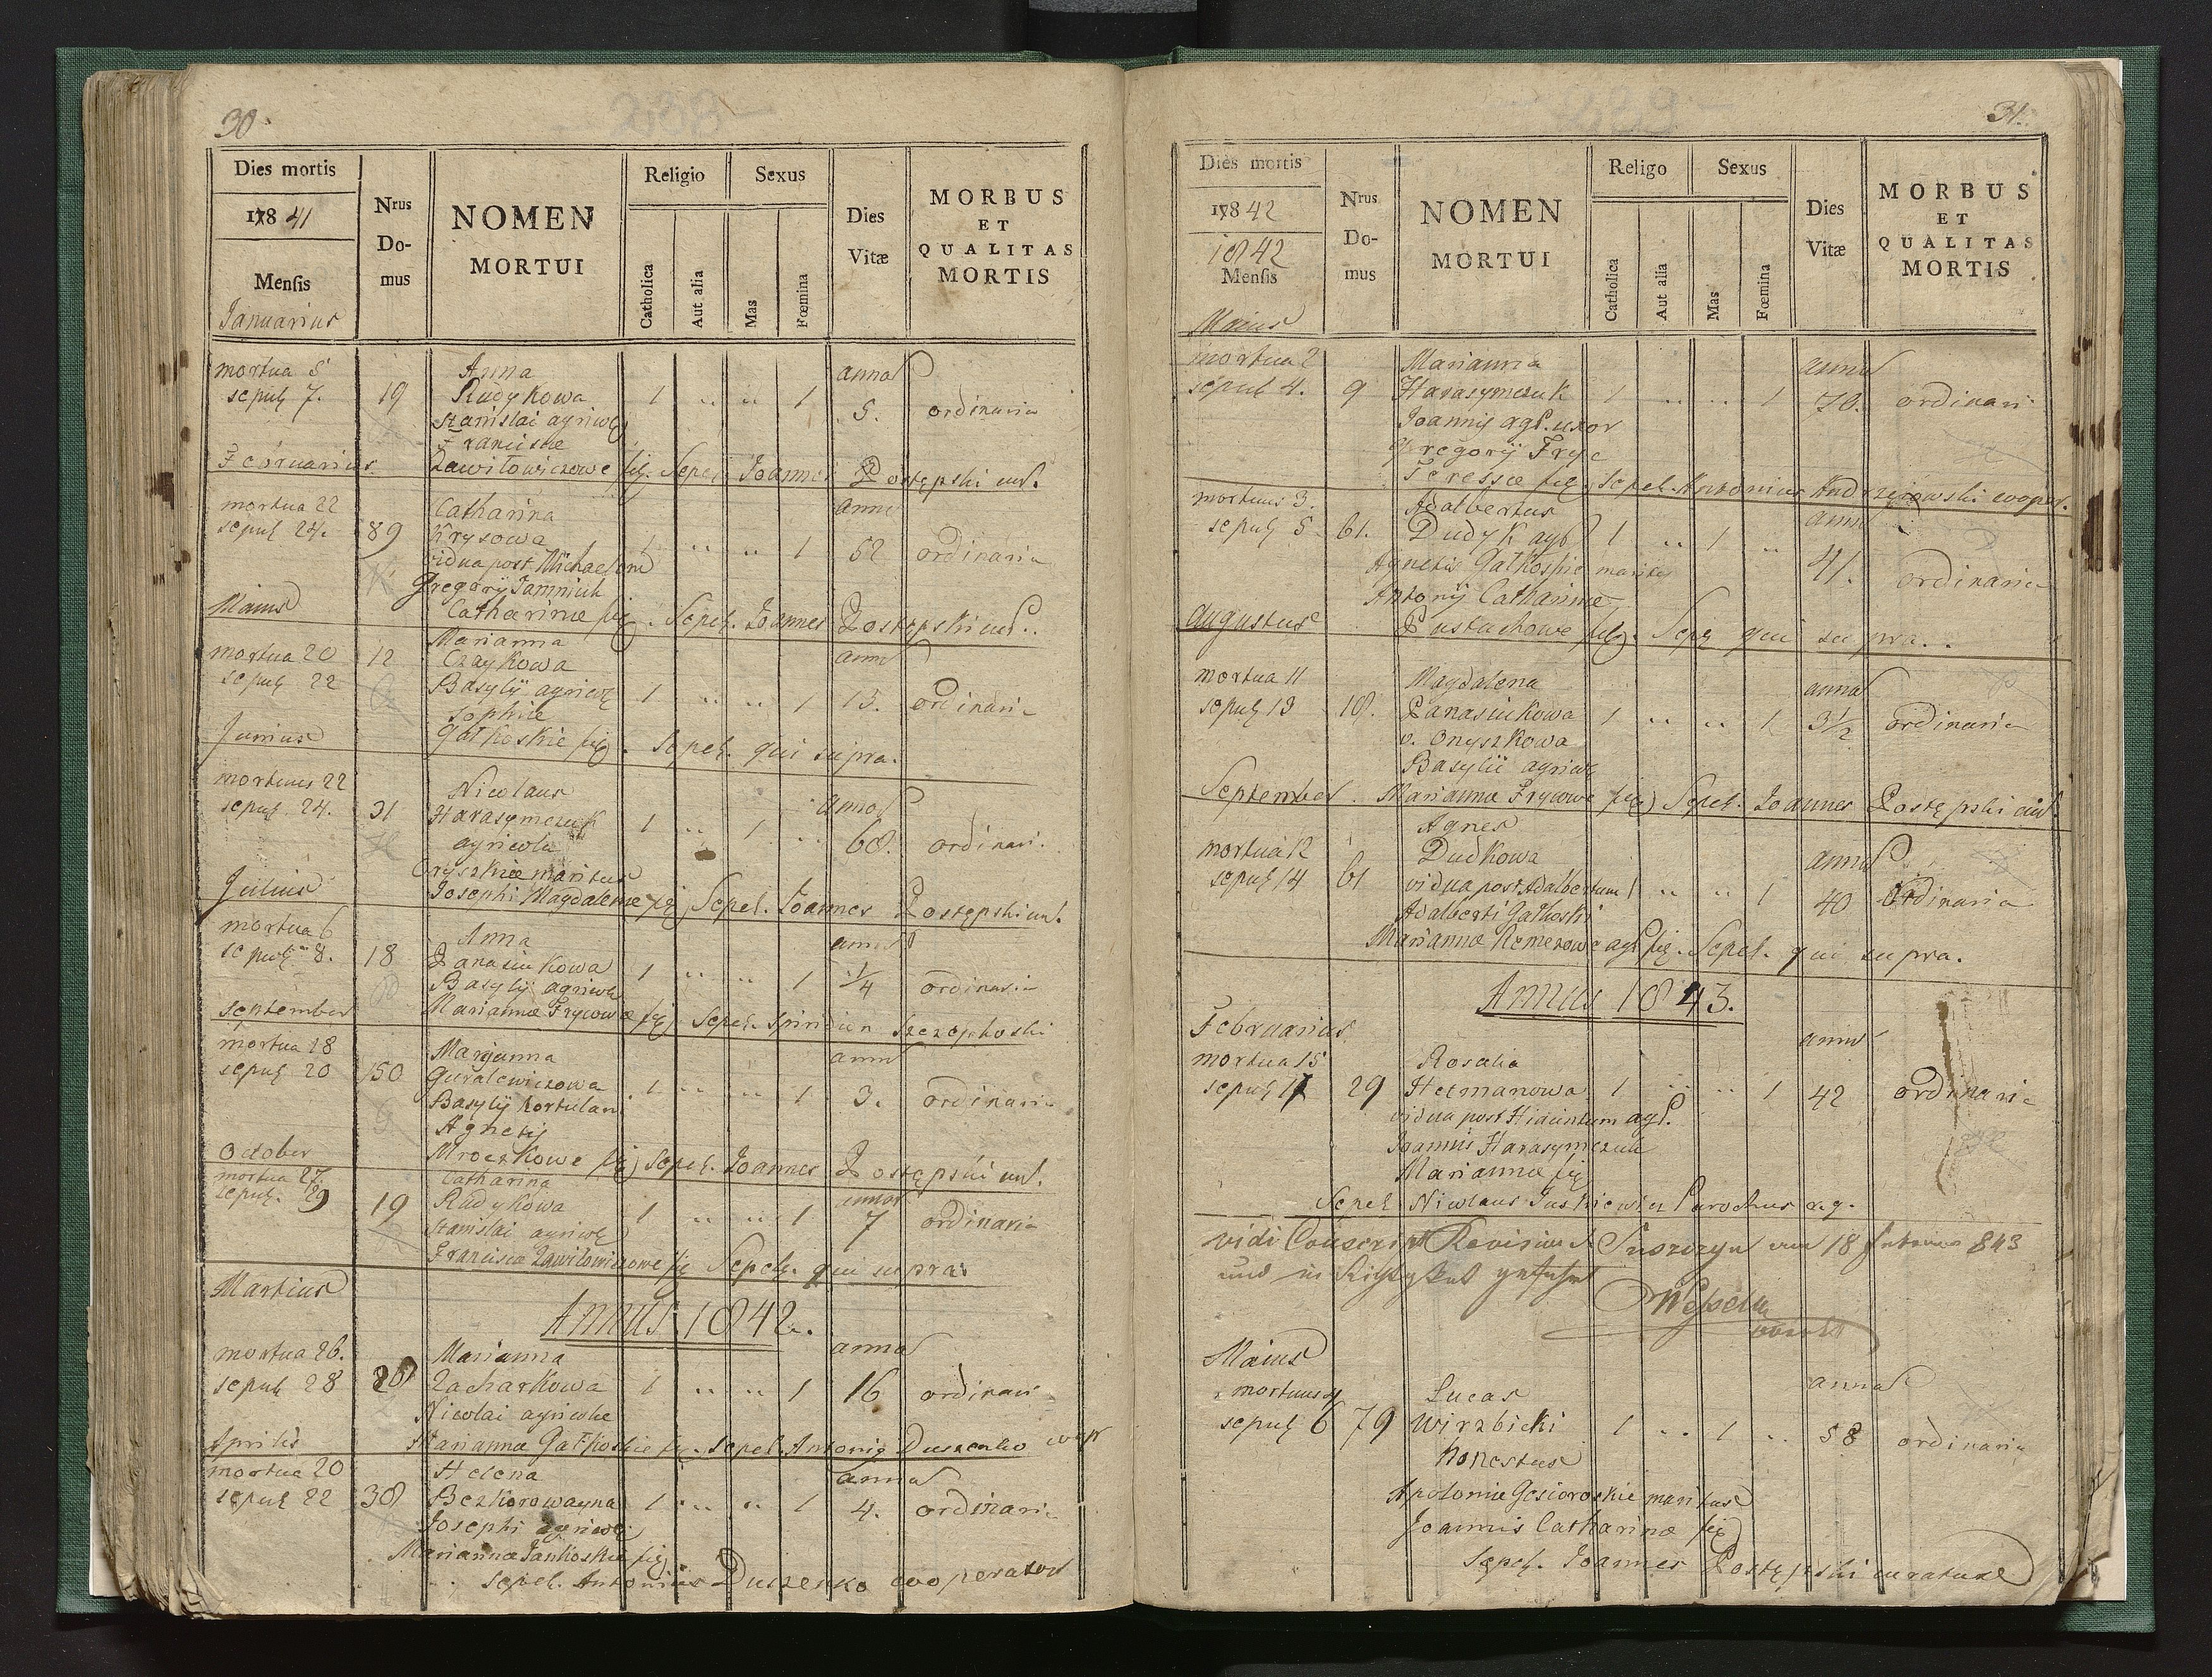 30.
Dies mortis
1841
Mensis
Januarius
Nrus Do- mus
NOMEN MORTUI
Religio
Catholica
Aut alia
Sexus
Mas
Fœmina
Dies Vitæ
MORBUS ET QUALITAS MORTIS
mortua 5 Anna annos
sepul. 7. 19 Rudykowa 1 .. .. 1 5. ordinaria
Stanislai agricolę
Franciscæ
Februarius. Zawiłowiczowe fil. Sepel. Joannes Postępski cur.
mortua 22 Catharina anni
sepul. 24. 89 Krysowa 1 .. .. 1 52 ordinaria
vidua post Michaelem
Gregorij Jamniuk
Maius Catharinæ fil. Sepel. Joannes Postępski cur.
Marianna
mortua 20 12 Czaykowa anni
sepul. 22 Basylij agricolę 1 .. .. 1 13. ordinaria
Sophiæ
Junius Gałkoskie fil. Sepel. qui supra.
mortuus 22 Nicolaus annos
sepul. 24. 31 Harasymczuk 1 .. 1 .. 60. ordinari.
agricola
Oryszkiæ maritus
Julius Josephi Magdalenæ fil. Sepel. Joannes Postępski cur.
mortua 6 Anna annos
sepul. 8. 18 Panasiukowa 1 .. .. 1 1/4 ordinaria
Basylij agricolę
September Mariannæ Frycowæ fil. Sepel. Spiridion Szczepkoski
mortua 18 Marjanna anni
sepul. 20 150 Guralewiczowa 1 .. .. 1 3. ordinaria
Basylij hortulani
Agnetis
October Mroczkowe fil. Sepel. Joannes Postępski cur.
mortua 27. Catharina annos
sepul. 29 19 Rudykowa 1 .. .. 1 7 ordinaria
Stanislai agricolę
Franciscæ Zawiłowiczowe fil. Sepel. qui supra
Martius
Annus 1842.
mortua 26. Marianna annos
sepul. 28 20 Zacharkowa 1 .. .. 1 16 ordinari
Nicolai agricolæ
Aprilis Mariannæ Gałkoskie fil. Sepel. Antonius Duszenko coopr
mortua 20 Helena annos
sepul. 22 30 Bezkorowayna 1 .. .. 1 4. ordinaria
Josephi agricolę
Mariannæ Jankoskie fil.
Sepel. Antonius Duszenko cooperator
31.
Dies mortis
1842
1842
Mensis
Maius
Nrus Do- mus
NOMEN MORTUI
Religo
Catholica
Aut alia
Sexus
Mas
Fœmina
Dies Vitæ
MORBUS ET QUALITAS MORTIS
mortua 2 Marianna annos
sepul. 4. 9 Harasymczuk 1 .. .. 1 70. ordinari
Joannis agr. uxor
Gregorij Fryc
Teressæ fil. Sepel. Antonius Andrzejowski cooper.
mortuus 3. Adalbertus annos
sepul. 5 61. Dudyk agr. 1 .. 1 .. 41. ordinaria
Agnetis Gałkoskie maritus
Antonij Catharinæ
Augustus Pastuchowe fil. Sepel. qui supra..
mortua 11 Magdalena annos
sepul. 13 18. Panasiukowa 1 .. .. 1 3 1/2 ordinaria
v. Onyszkowa
Basylii agricolę
September. Mariannæ Frycowe fil. Sepel. Joannes Postępski cur.
Agnes
mortua 12 Dudkowa annos
sepul. 14 61 vidua post Adalbertum 1 .. .. 1 40 ordinaria
Adalberti Gałkoski
Mariannæ Remezowe agr. fil. Sepel. qui supra.
Annus 1843.
Februarius annos
mortua 15 Rosalia
sepul. 17 29 Hetmanowa 1 .. .. 1 42 ordinaria
vidua post Hiacintum agr.
Joannis Harasymczuk
Mariannæ fil.
Sepel. Nicolaus Juskiewicz Parochus r. g.
vidi Conscript Revision Suszczyn am 18 Februar 843
und in Richtigkeit
Maius
mortuus 4 Lucas annos
sepul. 6 79 Wirzbicki 1 .. 1 .. 58 ordinaria
honestus
Apoloniæ Gesioroskie maritus
Joannis Catharinæ fil.
Sepel. Joannes Postępski curatus